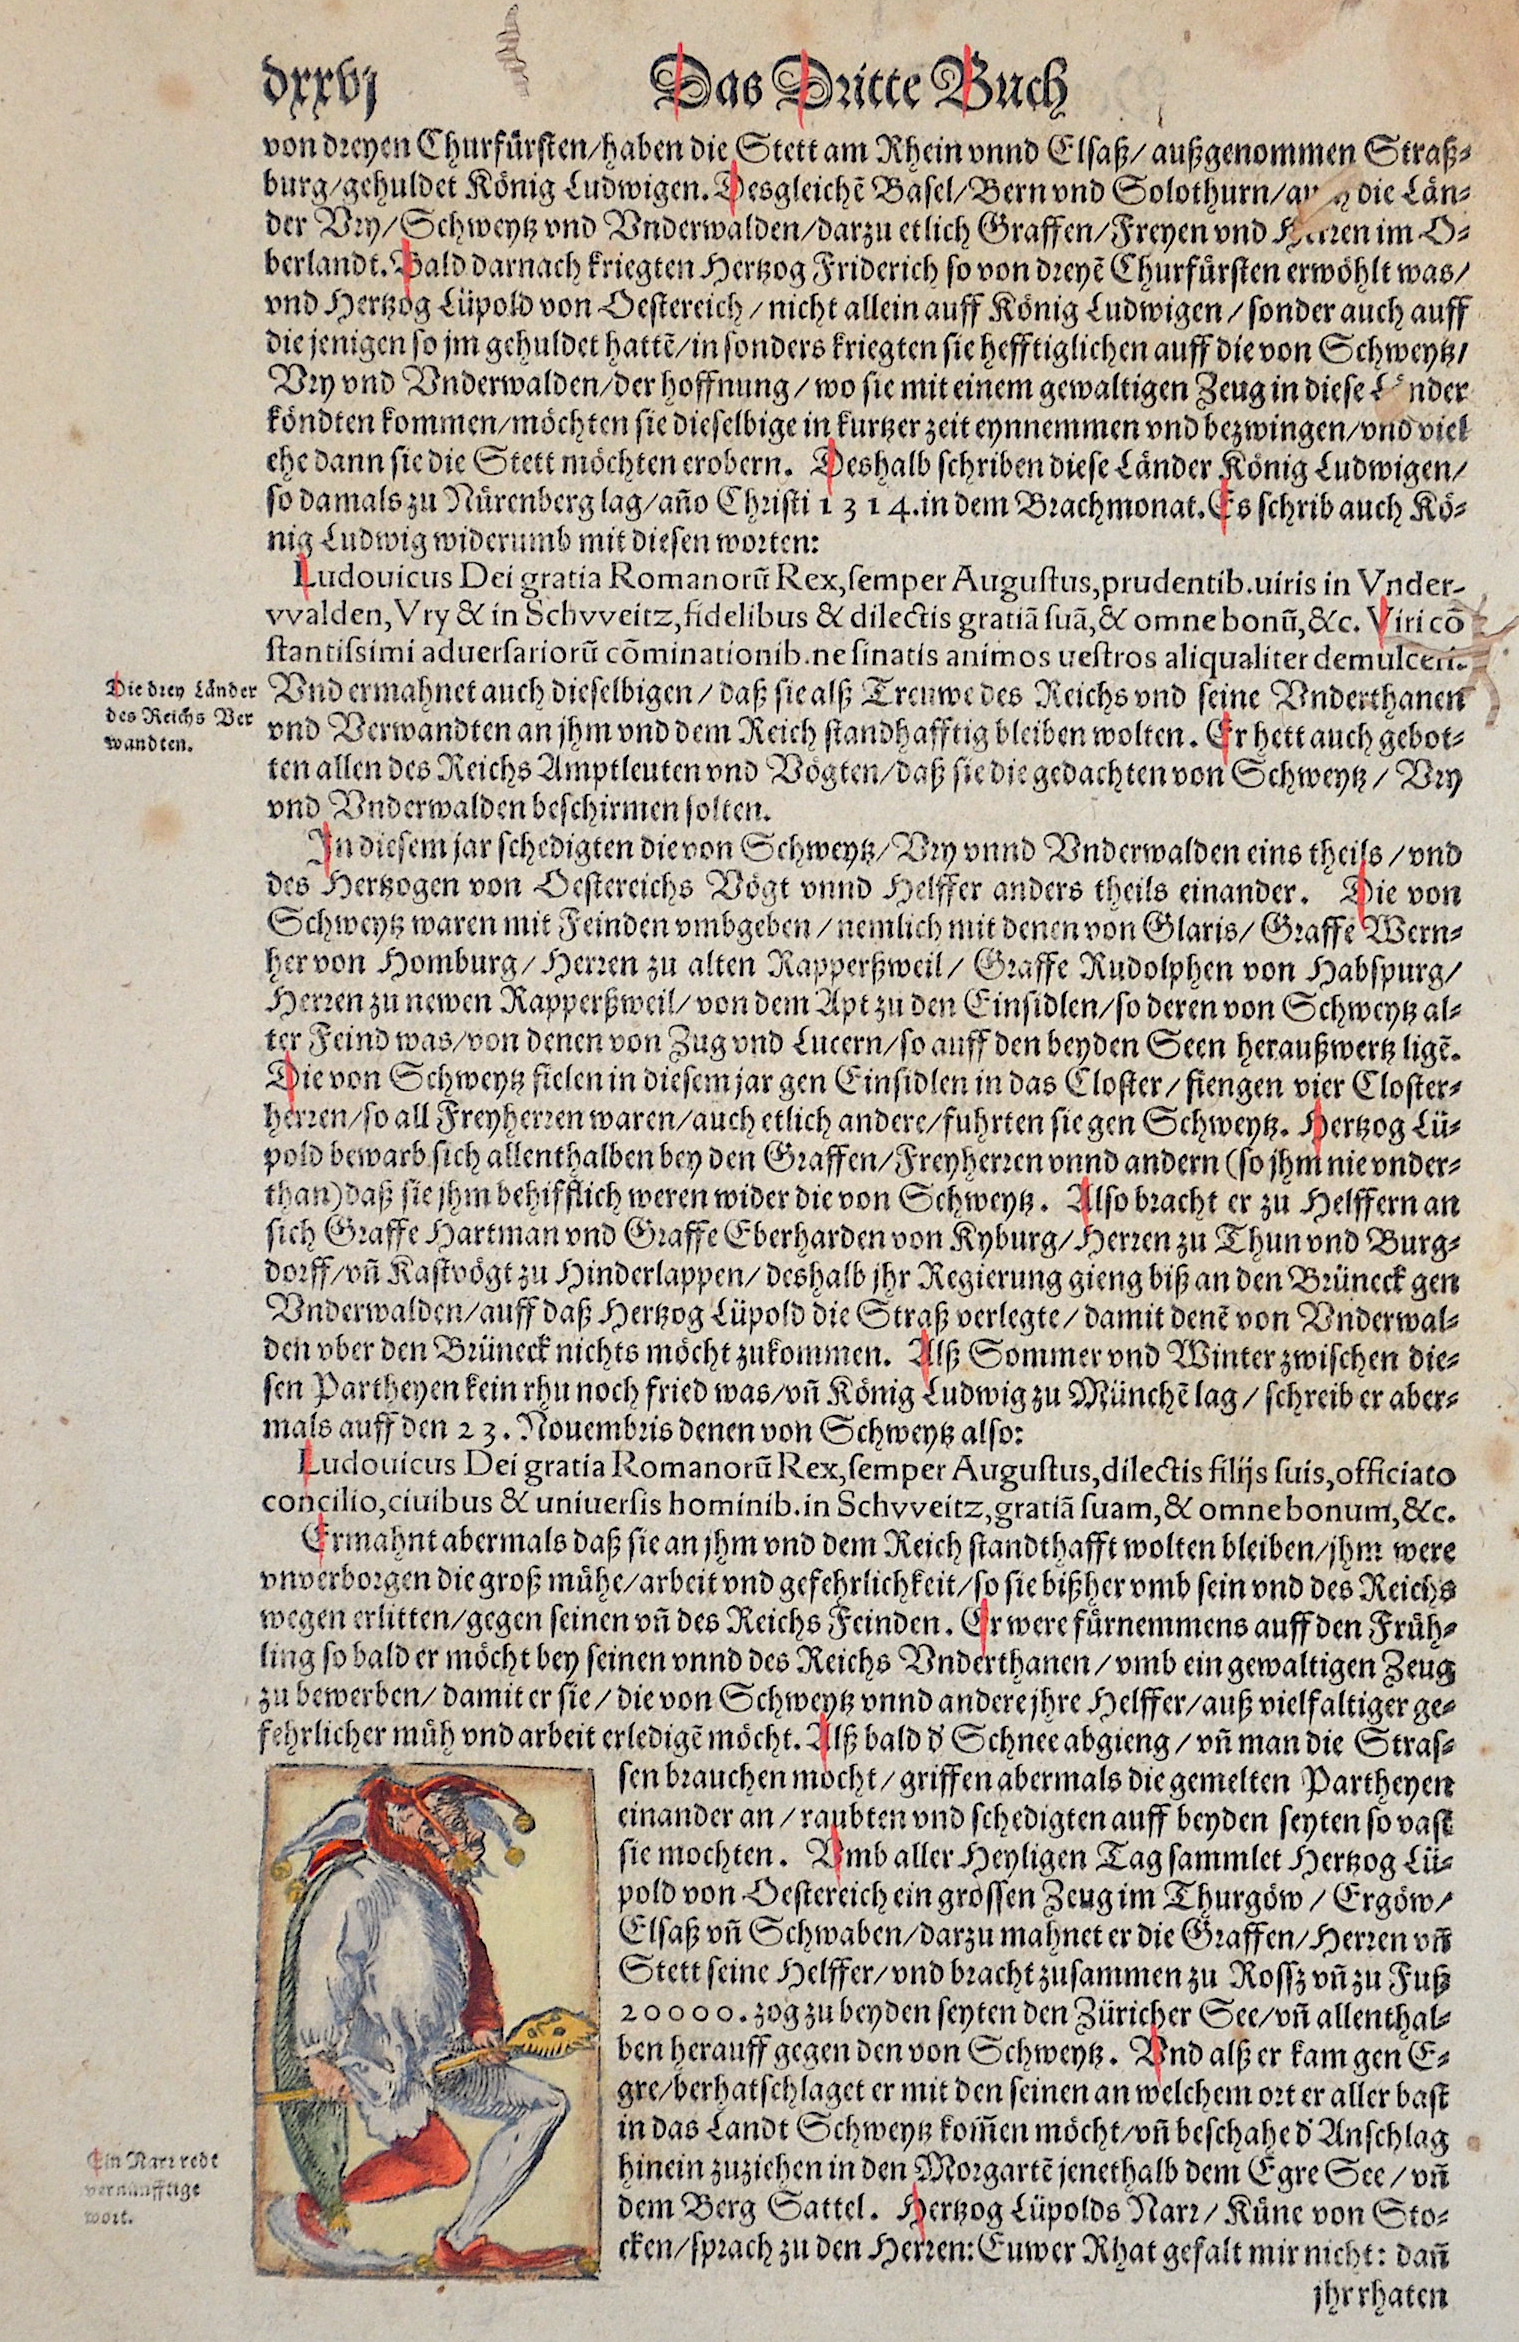 dxxvj
Das Dritte Buch
von dreyen Churfürsten/haben die Stett am Rhein vnnd Elsaß/außgenommen Straß-
burg/gehuldet König Ludwigen. Desgleichẽ Basel/Bern vnd Solothurn/ die Län-
der Vry/Schweytz vnd Vnderwalden/darzu etlich Graffen/Freyen vnd im O-
berlandt. Bald darnach kriegten Hertzog Friderich so von dreyẽ Churfürsten erwöhlt was/
vnd Hertzog Lüpold von Oestereich/nicht allein auff König Ludwigen/sonder auch auff
die jenigen so jm gehuldet hattẽ/in sonders kriegten sie hefftiglichen auff die von Schweytz/
Vry vnd Vnderwalden/der hoffnung/wo sie mit einem gewaltigen Zeug in diese
köndten kommen/möchten sie dieselbige in kurtzer zeit eynnemmen vnd bezwingen/vnd viel
ehe dann sie die Stett möchten erobern. Deshalb schriben diese Länder König Ludwigen/
so damals zu Nürenberg lag/año Christi 1314. in dem Brachmonat. Es schrib auch Kö-
nig Ludwig widerumb mit diesen worten:
Ludouicus Dei gratia Romanorũ Rex, semper Augustus, prudentib. uiris in Vnder-
vvalden, Vry & in Schvveitz, fidelibus & dilectis gratiã suã, & omne bonũ, &c. Viri cõ
stantissimi aduersariorũ cõminationib. ne sinatis animos uestros aliqualiter demulceri.
Die drey Länder
des Reichs Ver
wandten.
Vnd ermahnet auch dieselbigen/daß sie alß Treuwe des Reichs vnd seine Vnderthanen
vnd Verwandten an jhm vnd dem Reich standhafftig bleiben wolten. Er hett auch gebot-
ten allen des Reichs Amptleuten vnd Vögten/daß sie die gedachten von Schweytz/Vry
vnd Vnderwalden beschirmen solten.
In diesem jar schedigten die von Schweytz/Vry vnnd Vnderwalden eins theils/vnd
des Hertzogen von Oestereichs Vögt vnnd Helffer anders theils einander. Die von
Schweytz waren mit Feinden vmbgeben/nemlich mit denen von Glaris/Graffe Wern-
her von Homburg/Herren zu alten Rapperßweil/Graffe Rudolphen von Habspurg/
Herren zu newen Rapperßweil/von dem Apt zu den Einsidlen/so deren von Schweytz al-
ter Feind was/von denen von Zug vnd Lucern/so auff den beyden Seen heraußwertz ligẽ.
Die von Schweytz fielen in diesem jar gen Einsidlen in das Closter/fiengen vier Closter-
herren/so all Freyherren waren/auch etlich andere/fuhrten sie gen Schweytz. Hertzog Lü-
pold bewarb sich allenthalben bey den Graffen/Freyherren vnnd andern (so jhm nie vnder-
than) daß sie jhm behifflich weren wider die von Schweytz. Also bracht er zu Helffern an
sich Graffe Hartman vnd Graffe Eberharden von Kyburg/Herren zu Thun vnd Burg-
dorff/vñ Kastvögt zu Hinderlappen/deshalb jhr Regierung gieng biß an den Brüneck gen
Vnderwalden/auff daß Hertzog Lüpold die Straß verlegte/damit denẽ von Vnderwal-
den vber den Brüneck nichts möcht zukommen. Alß Sommer vnd Winter zwischen die-
sen Partheyen kein rhu noch fried was/vñ König Ludwig zu Münchẽ lag/schreib er aber-
mals auff den 23. Nouembris denen von Schweytz also:
Ludouicus Dei gratia Romanorũ Rex, semper Augustus, dilectis filijs suis, officiato
concilio, ciuibus & uniuersis hominib. in Schvveitz, gratiã suam, & omne bonum, &c.
Ermahnt abermals daß sie an jhm vnd dem Reich standthafft wolten bleiben/jhm were
vnverborgen die groß mühe/arbeit vnd gefehrlichkeit/so sie bißher vmb sein vnd des Reichs
wegen erlitten/gegen seinen vñ des Reichs Feinden. Er were fürnemmens auff den Früh-
ling so bald er möcht bey seinen vnnd des Reichs Vnderthanen/vmb ein gewaltigen Zeug
zu bewerben/damit er sie/die von Schweytz vnnd andere jhre Helffer/auß vielfaltiger ge-
fehrlicher müh vnd arbeit erledigẽ möcht. Alß bald d' Schnee abgieng/vñ man die Stras-
sen brauchen mocht/griffen abermals die gemelten Partheyen
einander an/raubten vnd schedigten auff beyden seyten so vast
sie mochten. Vmb aller Heyligen Tag sammlet Hertzog Lü-
pold von Oestereich ein grossen Zeug im Thurgöw/Ergöw/
Elsaß vñ Schwaben/darzu mahnet er die Graffen/Herren vñ
Stett seine Helffer/vnd bracht zusammen zu Rossz vñ zu Fuß
20000. zog zu beyden seyten den Züricher See/vñ allenthal-
ben herauff gegen den von Schweytz. Vnd alß er kam gen E-
gre/berhatschlaget er mit den seinen an welchem ort er aller bast
in das Landt Schweytz kom̃en möcht/vñ beschahe d' Anschlag
hinein zuziehen in den Morgartẽ jenethalb dem Egre See/vñ
dem Berg Sattel. Hertzog Lüpolds Narr/Küne von Sto-
cken/sprach zu den Herren: Euwer Rhat gefalt mir nicht: dañ
Ein Narr redt
vernünfftige
wort.
jhr rhaten